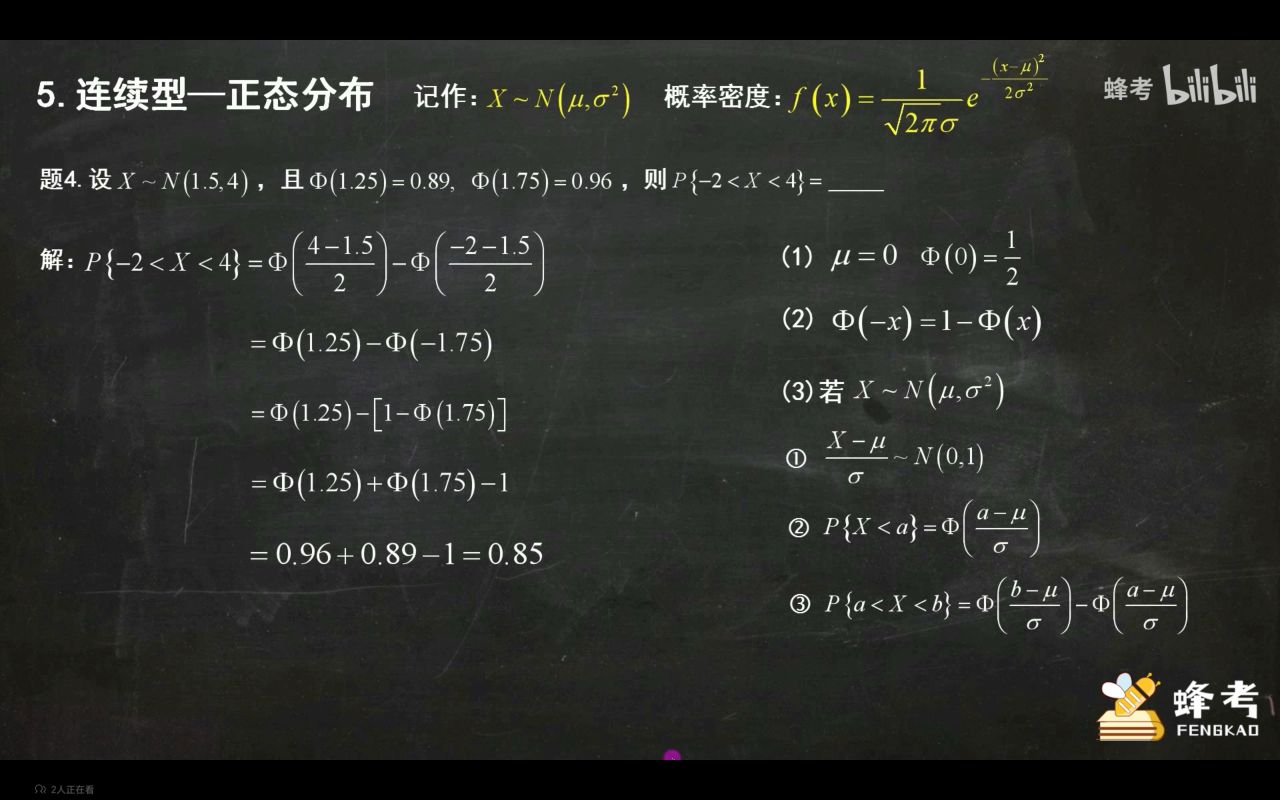 5.连续型—正态分布 记作：X ~ N(μ,σ²) 概率密度：f(x) = \frac{1}{\sqrt{2π}σ} e^{-\frac{(x-μ)²}{2σ²}}
蜂考 bilibili
题4.设 X ~ N(1.5,4)，且 Φ(1.25) = 0.89, Φ(1.75) = 0.96，则 P{-2 < X < 4} = _____
解：P{-2 < X < 4} = Φ(\frac{4-1.5}{2}) - Φ(\frac{-2-1.5}{2})
= Φ(1.25) - Φ(-1.75)
= Φ(1.25) - [1 - Φ(1.75)]
= Φ(1.25) + Φ(1.75) - 1
= 0.96 + 0.89 - 1 = 0.85
(1) μ = 0 Φ(0) = \frac{1}{2}
(2) Φ(-x) = 1 - Φ(x)
(3)若 X ~ N(μ,σ²)
① \frac{X-μ}{σ} ~ N(0,1)
② P{X < a} = Φ(\frac{a-μ}{σ})
③ P{a < X < b} = Φ(\frac{b-μ}{σ}) - Φ(\frac{a-μ}{σ})
蜂考
FENGKAO
2人正在看